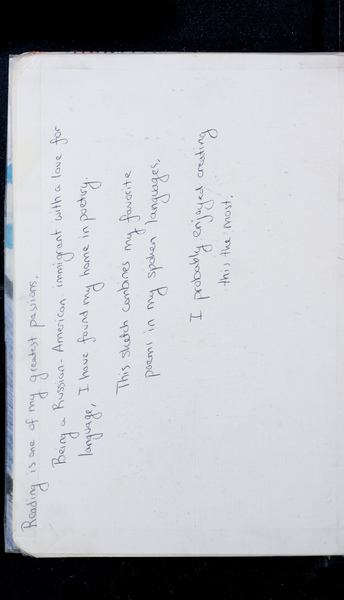 Reading is one of my greatest passions.
Being a Russian-American immigrant with a love for
language, I have found my home in poetry.
This sketch combines my favorite
poems in my spoken languages.
I probably enjoyed creating
this the most.